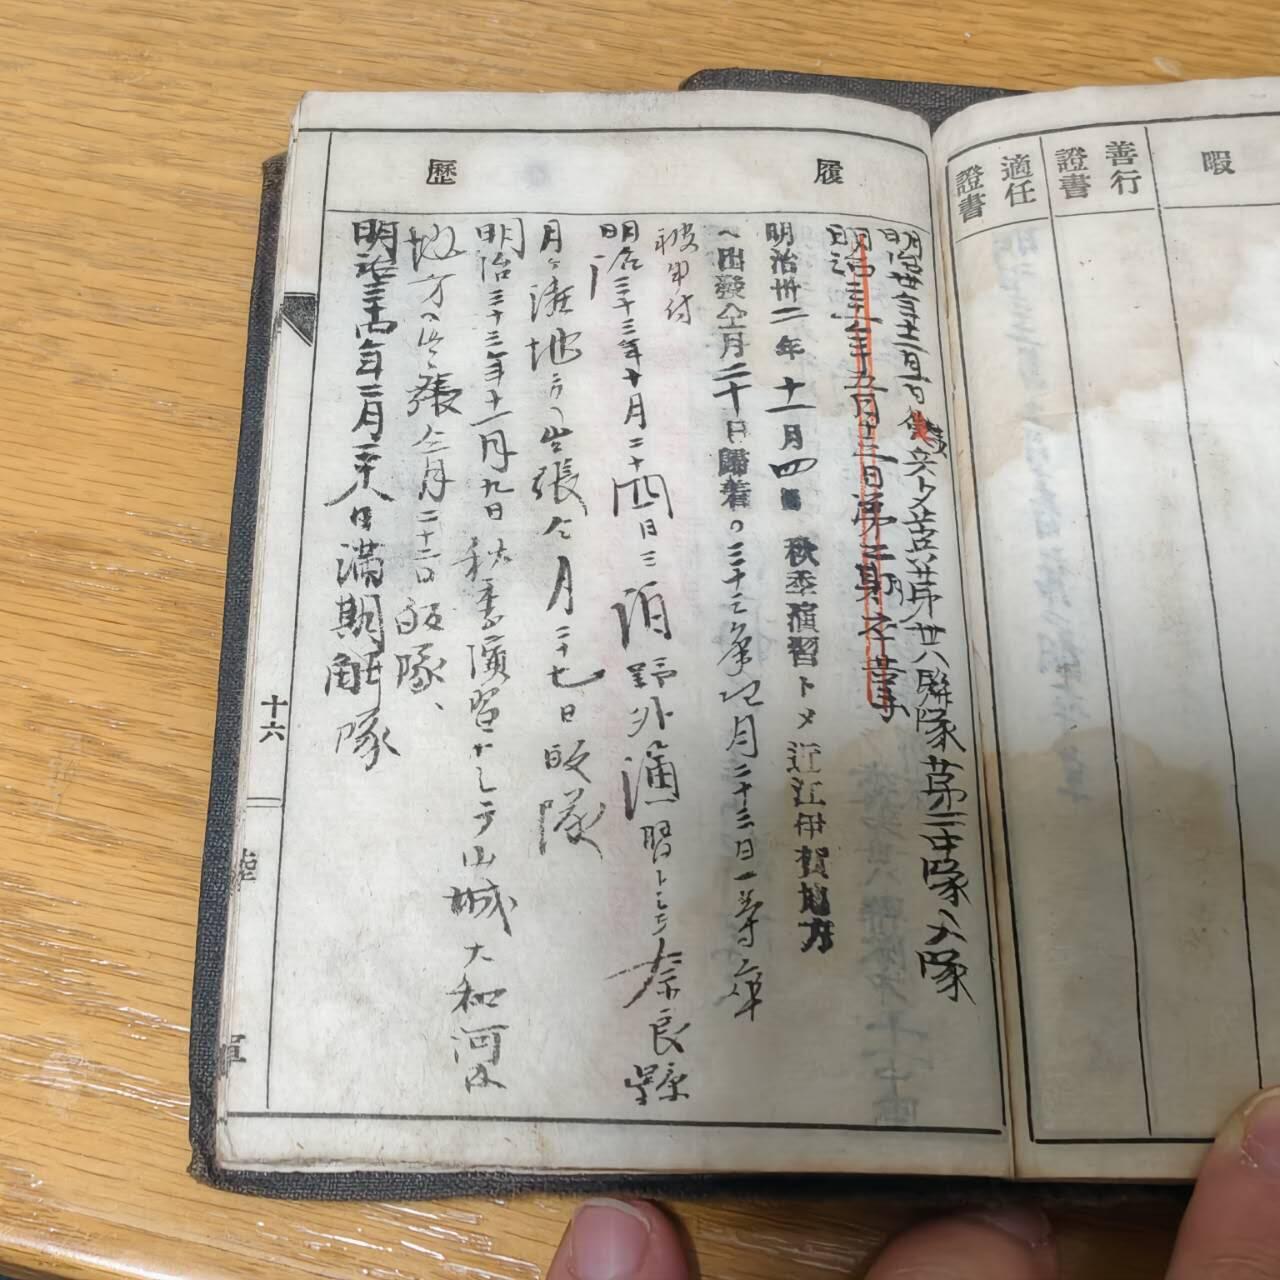 暇
善行證書
適任證書
履歷
明治卅一年十二月一日
兵トシテ歩兵第卅八聯隊第二中隊入隊
明治三十二年五月十三日第二期卒業
明治卅二年十一月四日秋季演習トメ近江伊賀地方
へ出發仝月二十日歸着。三十三年四月二十三日一等卒
被申付
明治三十三年十月二十四日三泊野外演習トシテ奈良縣
月ヶ瀬地方へ出張仝月二十七日皈隊
明治三十三年十一月九日秋季演習トシテ山城大和河内
地方へ出張仝月二十二日皈隊、
明治三十四年三月二十八日満期解隊
十六
陸軍